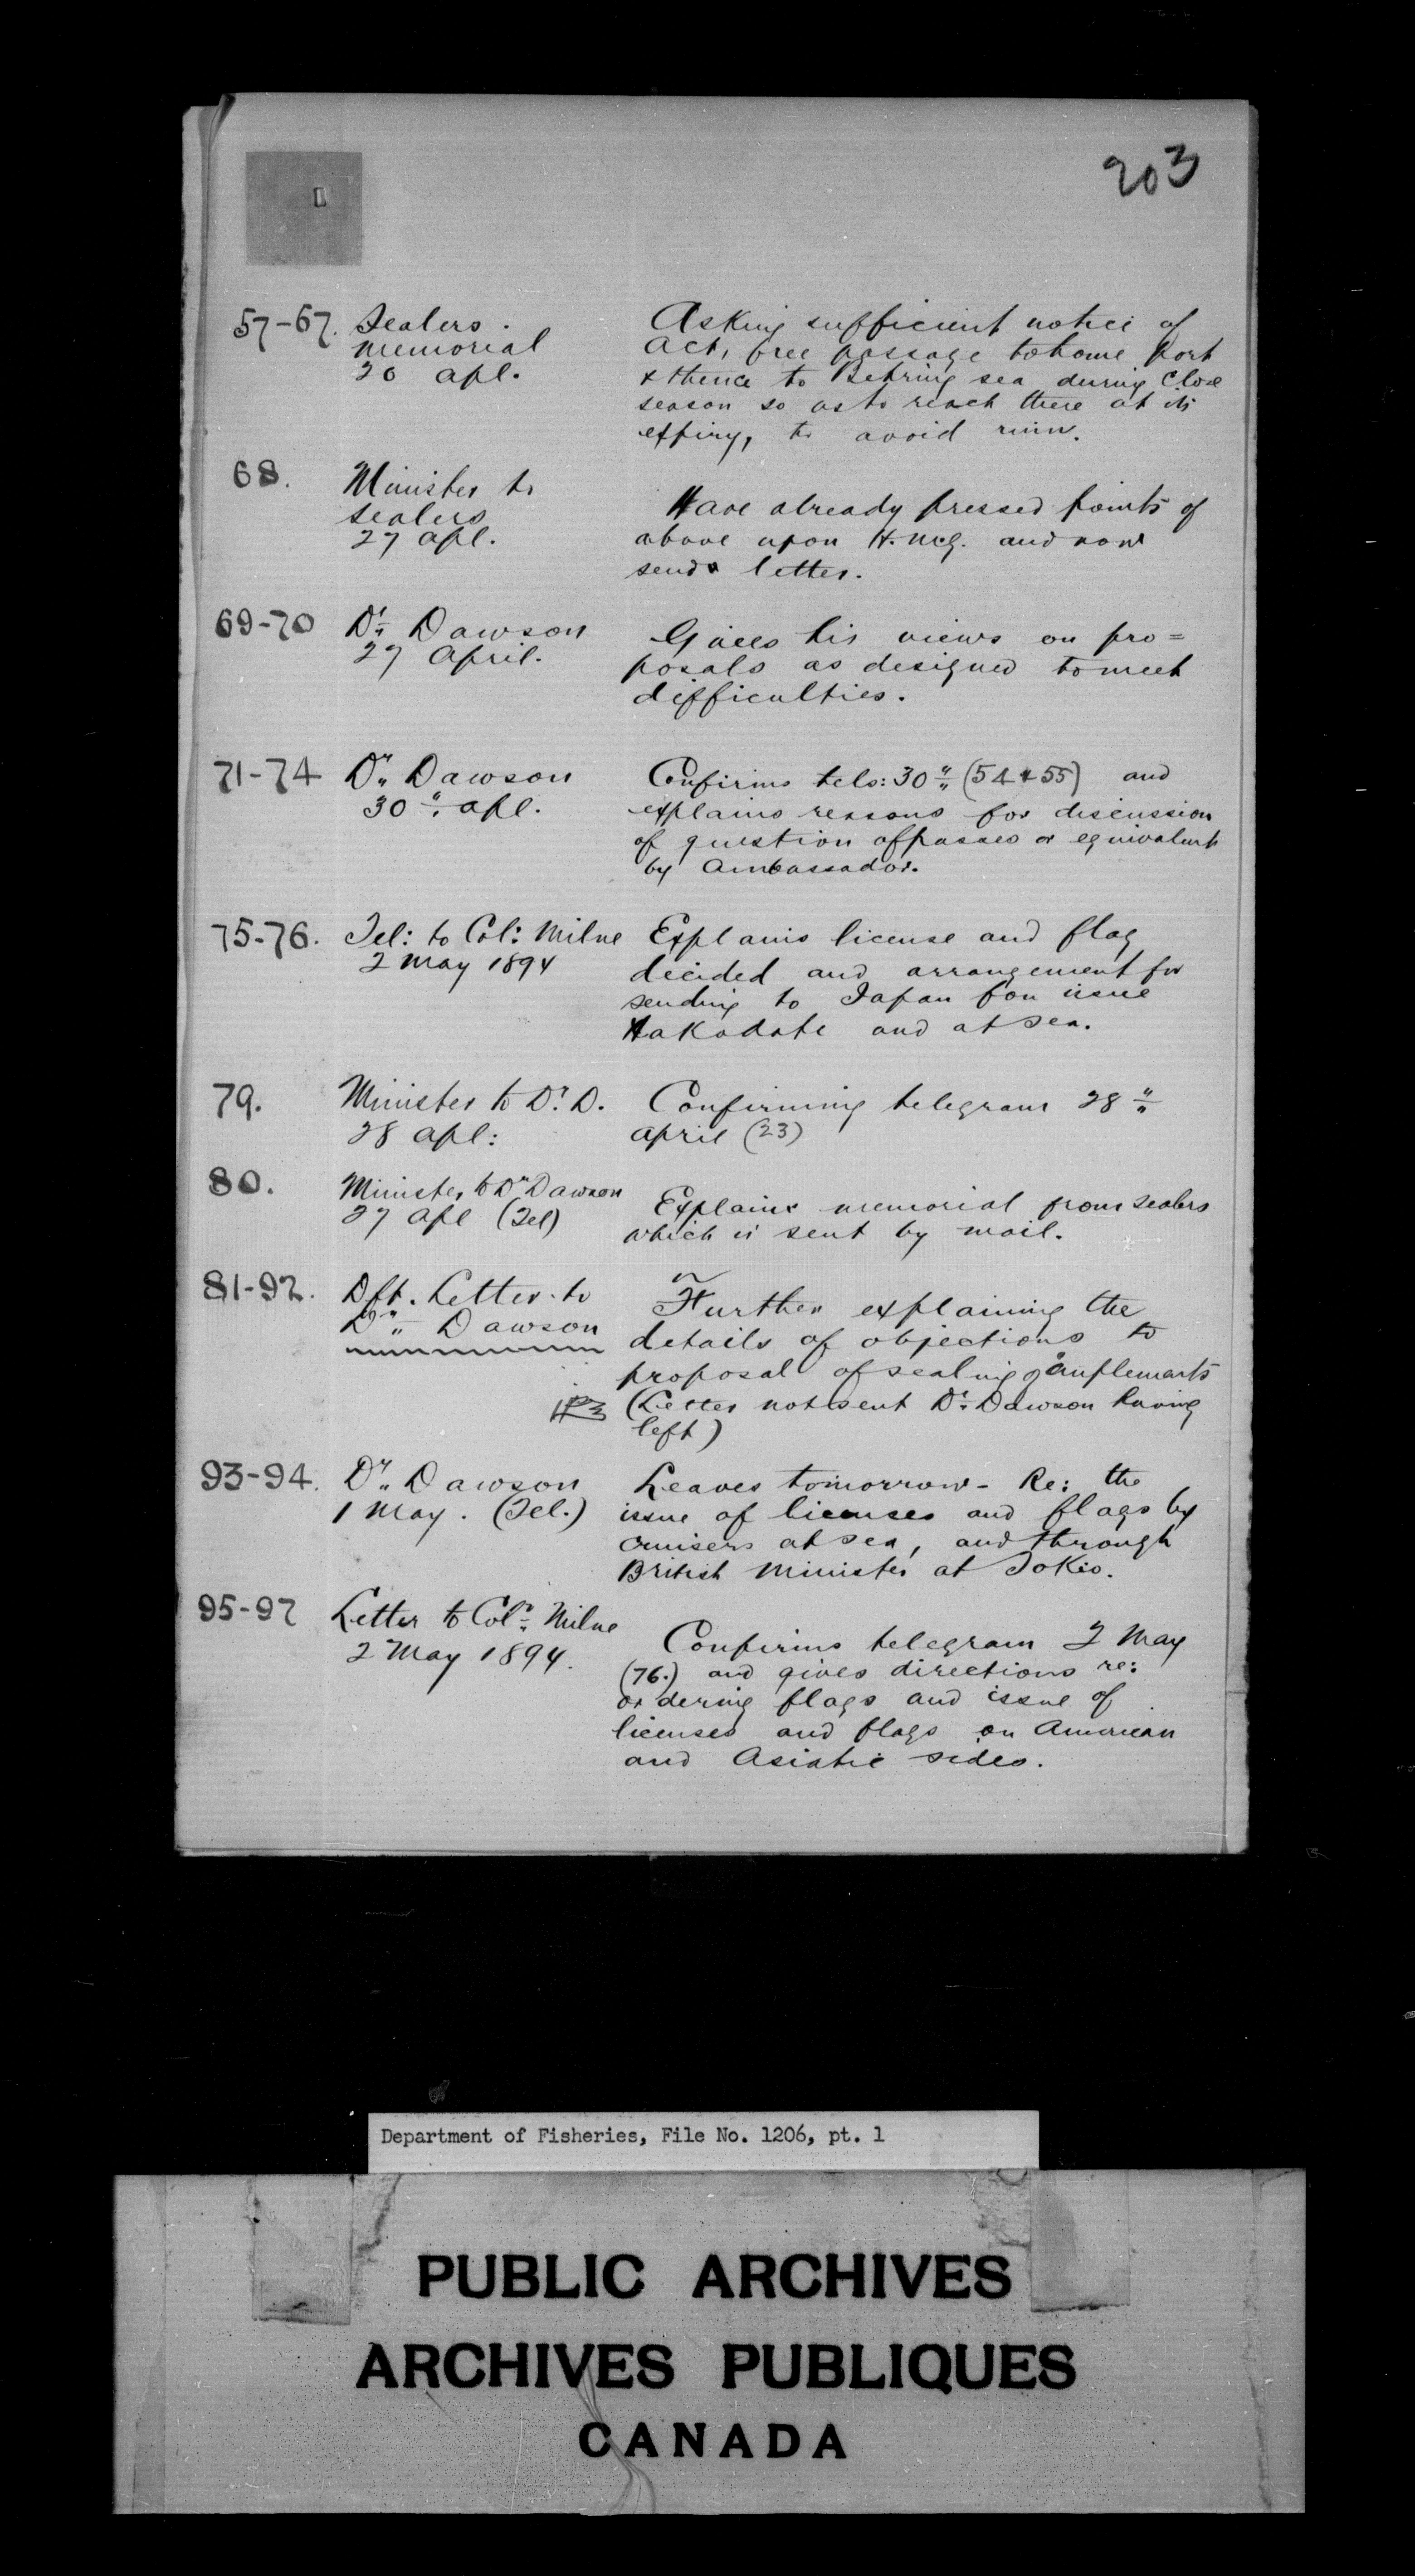 203
57-67. Sealers.
memorial
20 apl.
Asking sufficient notice of
Act, free passage to home port
& thence to Behring sea during close
season so as to reach there at its
expiry, to avoid ruin.
68. Minister to
sealers
27 apl.
Have already pressed points of
above upon H.M.G. and now
sends letter.
69-70 Dr. Dawson
27 April.
Gives his views on pro=
posals as designed to meet
difficulties.
71-74 Dr. Dawson
30" apl.
Confirms tels: 30" (54 & 55) and
explains reasons for discussion
of question of passes or equivalent
by Ambassador.
75-76. Tel: to Col: Milne
2 May 1894
Explains license and flag
decided and arrangement for
sending to Japan for issue
Hakodate and at sea.
79. Minister to Dr. D.
28 apl:
Confirming telegram 28"
April (23)
80. Minister to Dr. Dawson
27 apl (Tel)
Explains memorial from sealers
which is sent by mail.
81-92. Dft. Letter to
Dr. Dawson
Further explaining the
details of objections to
proposal of sealing of implements
(Letter not sent Dr. Dawson having
left)
93-94. Dr. Dawson
1 May. (Tel.)
Leaves tomorrow - Re: the
issue of licenses and flags by
cruisers at sea, and through
British Minister at Tokio.
95-97 Letter to Colr. Milne
2 May 1894.
Confirms telegram 2 May
(76.) and gives directions re:
ordering flags and issue of
licenses and flags on American
and Asiatic sides.
Department of Fisheries, File No. 1206, pt. 1
PUBLIC ARCHIVES
ARCHIVES PUBLIQUES
CANADA